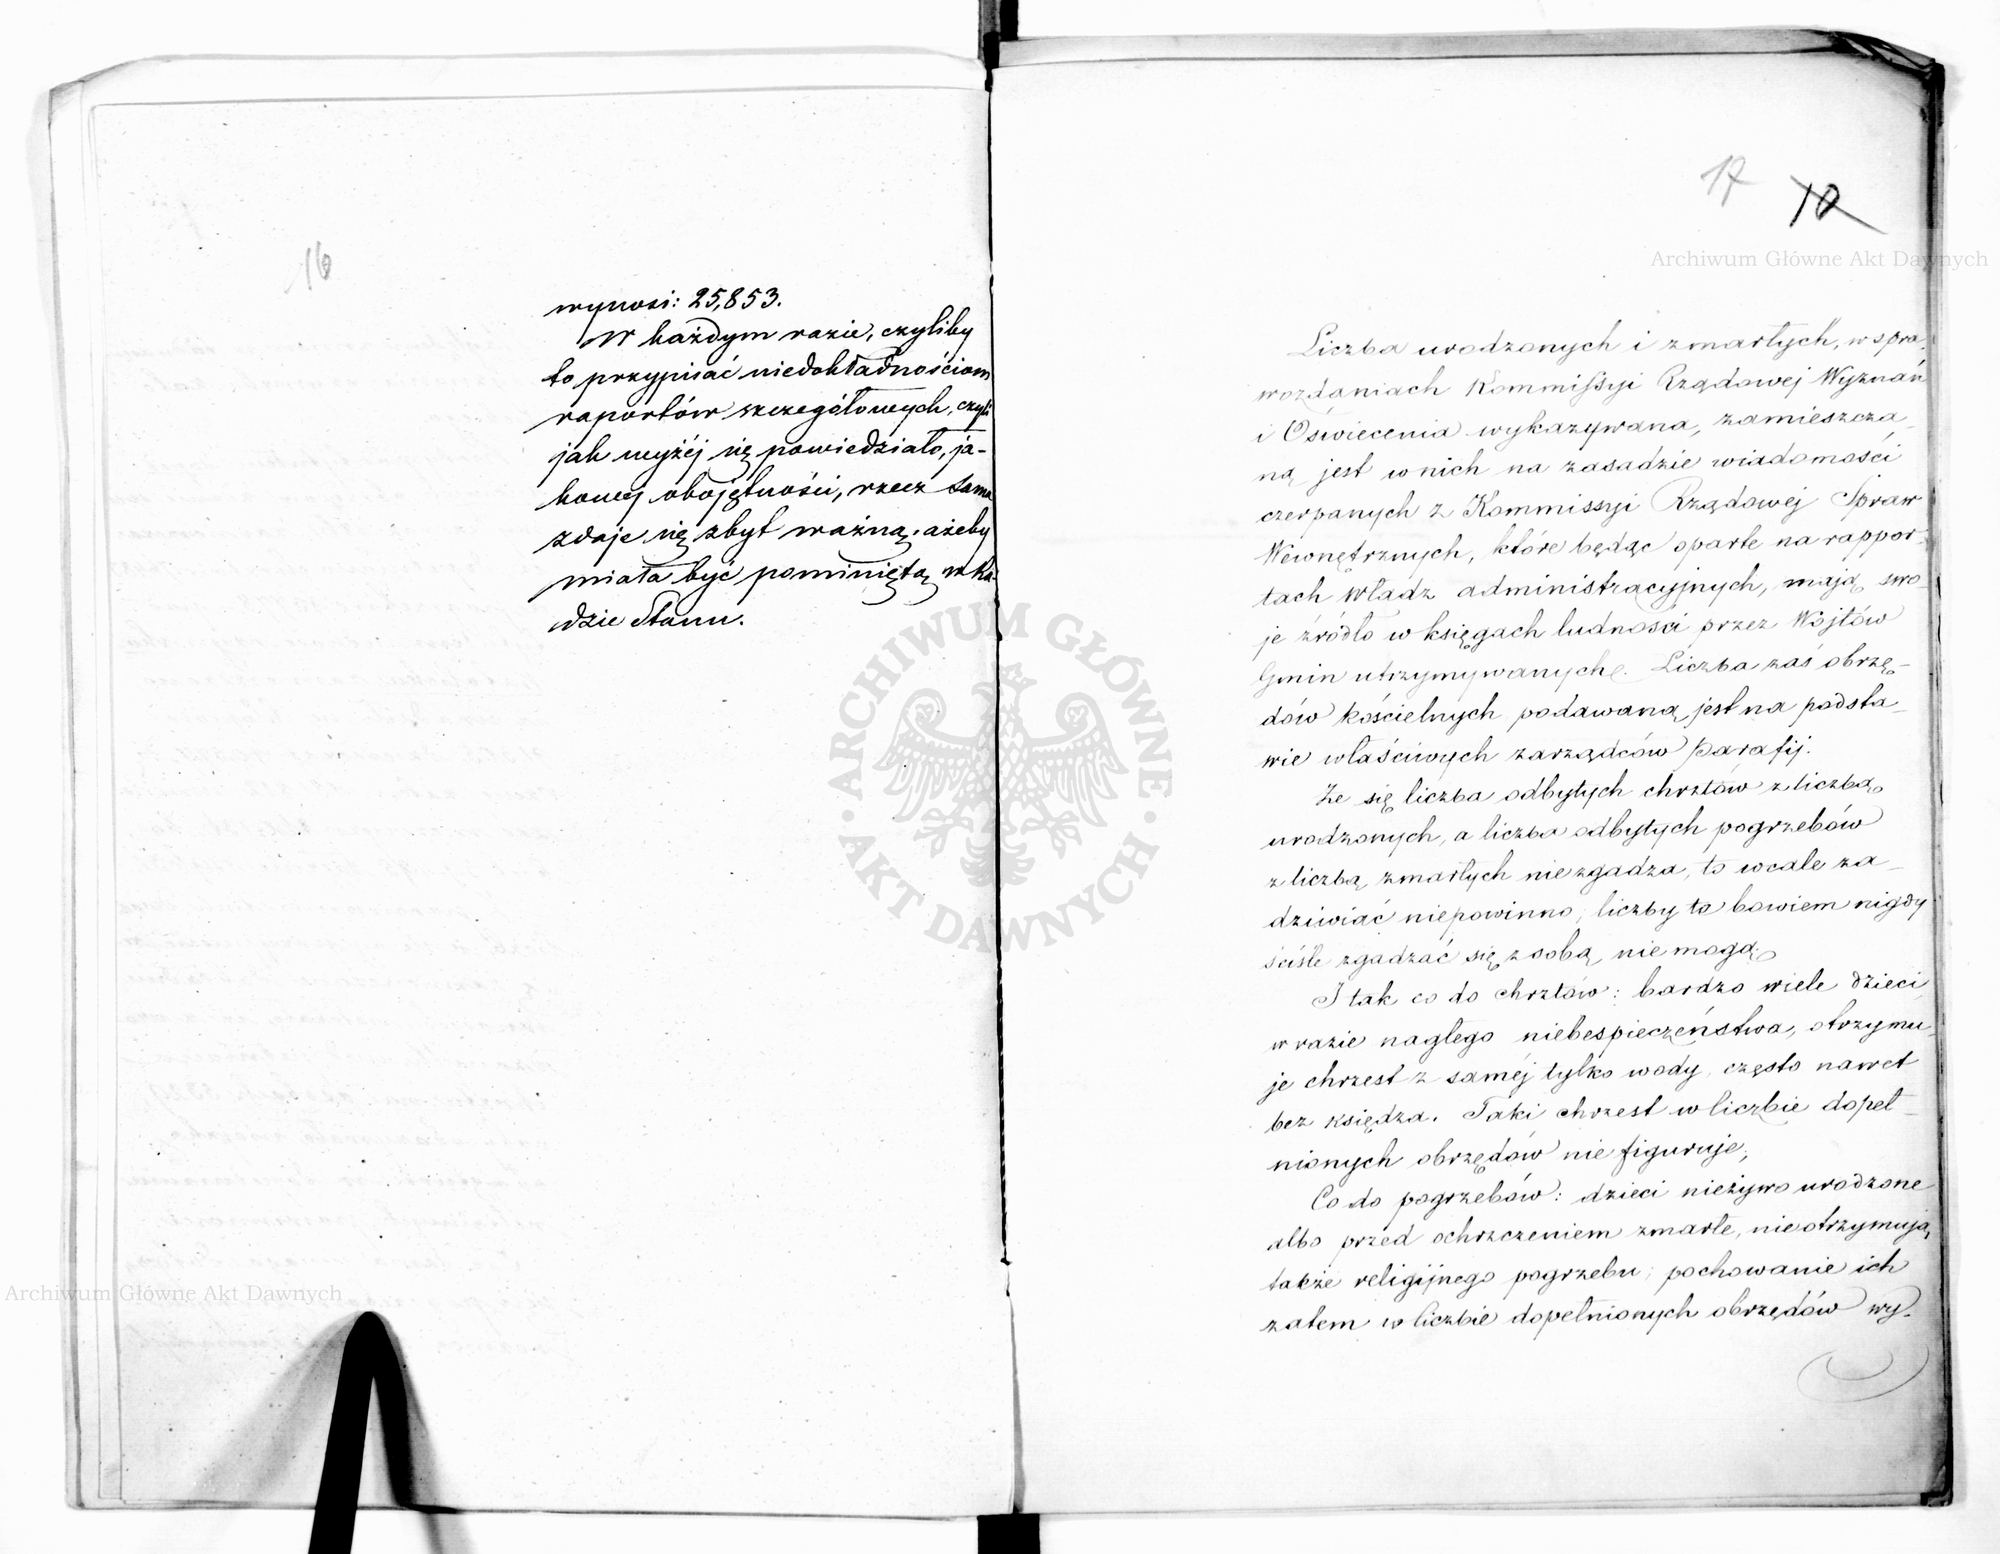 16
wynosi: 25,853.
W każdym razie, czyliby
to przypisać niedokładnościom
raportów szczegółowych, czyli
jak wyżéj się powiedziało, ja-
kowej obojętności, rzecz sama
zdaje się zbyt ważną, ażeby
miała być pominiętą w Ra-
dzie Stanu.
17 10
Liczba urodzonych i zmarłych, w spra-
wozdaniach Kommissyi Rządowej Wyznań
i Oświecenia wykazywana, zamieszcza-
ną jest w nich na zasadzie wiadomości
czerpanych z Kommissyi Rządowéj Spraw
Wewnętrznych, które będąc oparte na rappor-
tach władz administracyjnych, mają swo-
je źródło w księgach ludności przez Wójtów
Gmin utrzymywanych. Liczba zaś obrzę-
dów kościelnych podawaną jest na podsta-
wie właściwych zarządców parafij.
Że się liczba odbytych chrztów z liczbą
urodzonych, a liczba odbytych pogrzebów
z liczbą zmarłych nie zgadza, to wcale za-
dziwiać niepowinno, liczby te bowiem nigdy
ściśle zgadzać się z sobą nie mogą.
I tak co do chrztów: bardzo wiele dzieci
w razie nagłego niebespieczeństwa, otrzymu-
je chrzest z saméj tylko wody, często nawet
bez księdza. Taki chrzest w liczbie dopeł-
nionych obrzędów nie figuruje,
Co do pogrzebów: dzieci nieżywo urodzone
albo przed ochrzczeniem zmarłe, nie otrzymują
także religijnego pogrzebu, pochowanie ich
zatem w liczbie dopełnionych obrzędów wy-
Archiwum Główne Akt Dawnych
Archiwum Główne Akt Dawnych
ARCHIWUM GŁÓWNE · AKT DAWNYCH ·